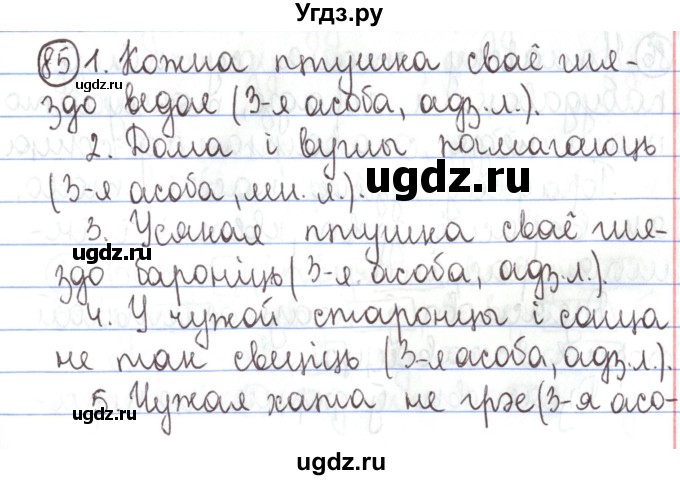 Угдз.ру
85 1. Кожна птушка сваё гня-
здо ведае (3-я асоба, адз.л.).
2. Дома і вуглы памагаюць
ugdz.ru
(3-я асоба, мн. л.).
ugdz.ru
3. Усякая птушка сваё гня-
здо бароніць (3-я асоба, адз.л.).
ugdz.ru
4. У чужой старонцы і сонца
не так свеціць (3-я асоба, адз.л.).
ugdz.ru
5. Чужая хата не грэе (3-я асо-
ugdz.ru